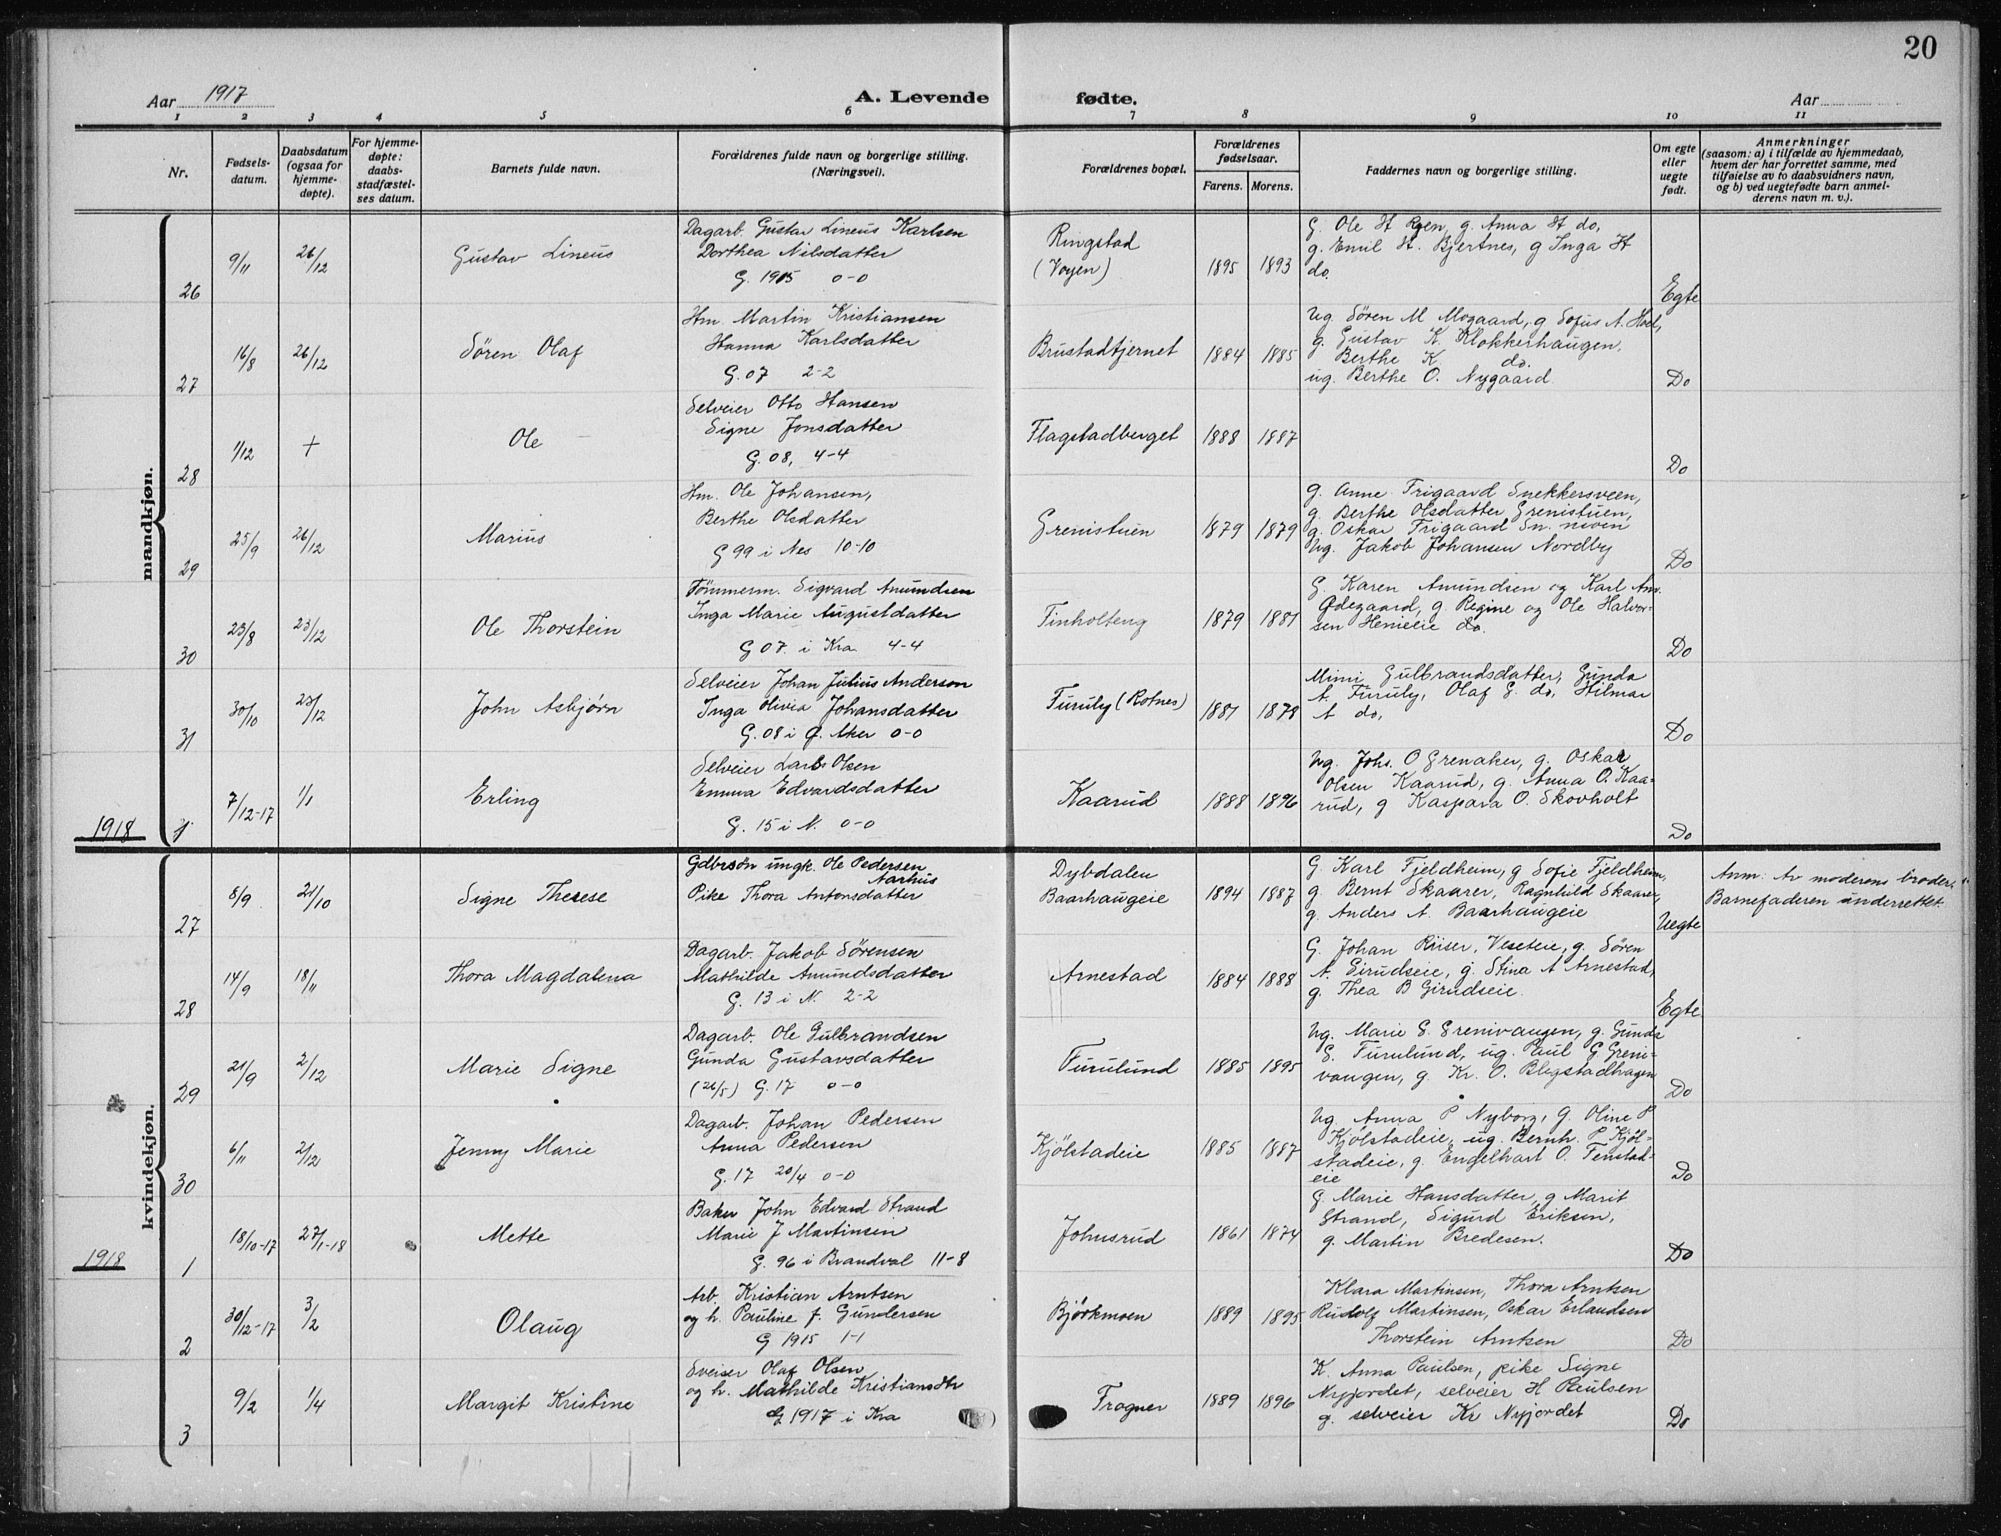 20
Aar 1917
A. Levende fødte.
Aar
1 2 3 4 5 6 7 8 9 10 11
Nr.
Fødsels-
datum.
Daabsdatum
(ogsaa for
hjemme-
døpte).
For hjemme-
døpte:
daabs-
stadfæstel-
ses datum.
Barnets fulde navn.
Forældrenes fulde navn og borgerlige stilling.
(Næringsvei).
Forældrenes bopæl.
Forældrenes
fødselsaar.
Farens. Morens.
Faddernes navn og borgerlige stilling.
Om egte
eller
uegte
født.
Anmerkninger
(saasom: a) i tilfælde av hjemmedaab,
hvem der har forrettet samme, med
tilføielse av to daabsvidners navn,
og b) ved uegtefødte barn anmel-
derens navn m. v.).
mandkjøn.
26
9/11
26/12
Gustav Lineus
Dagarb. Gustav Lineus Karlsen
Dorthea Nilsdatter
G. 1915 0-0
Ringstad
(Voyen)
1895 1893
G. Ole H Roen, g. Anna H do,
g. Emil H. Bjertnes, g Inga H
do.
Egte
27
16/8
26/12
Sören Olaf
Hm. Martin Kristiansen
Hanna Karlsdatter
G. 07 2-2
Brustadtjernet
1884 1885
Ug. Sören M Mogaard, g Sofus A. Hoel,
g. Gustav K. Klokkerhaugen,
Berthe K do.
ug. Berthe O. Nygaard
Do
28
1/12
+
Ole
Selveier Otto Hansen
Signe Jonsdatter
G. 08, 4-4
Flagstadberget
1888 1887
Do
29
25/9
26/12
Marius
Hm. Ole Johansen,
Berthe Olsdatter
G 99 i Nes 10-10
Grenistuen
1879 1879
g. Anne Frigaard Snekkersveen,
g. Berthe Olsdatter Grenistuen,
g. Oskar Frigaard Sn.
Ug. Jakob Johansen Nordby
Do
30
23/8
23/12
Ole Thorstein
Tömmerm. Sigvard Amundsen
Inga Marie Augustdatter
G 07. i Kra 4-4
Tinholteng
1879 1881
G. Karen Amundsen og Karl Am.
Ødegaard, g. Regine og Ole Halvor-
sen Henieie do.
Do
31
30/10
John Asbjørn
Selveier Johan Julius Andersen
Inga Olivia Johansdatter
G. 08 i Ø. Aker 0-0
Furuly (Rotnes)
1881 1878
Mimi Gulbrandsdatter, Gunda
A. Furuly, Olaf G. do, Hilmar
A do,
Do
1918
1
7/12-17
1/1
Erling
Selveier Lars Olsen
Emma Edvardsdatter
G. 15 i N. 0-0
Kaarud
1888 1896
Ug. Johs. O Grenaker, g. Oskar
Olsen Kaarud, g. Anna O. Kaa-
rud, g Kaspara O. Skovholt
Do
kvindekjøn.
27
8/9
21/10
Signe Therese
Gdbrsön ungk. Ole Pedersen
Aarhus
Pike Thora Antonsdatter
Dybdalen
Baarhaugeie
1894 1887
G Karl Fjeldheim, g Sofie Fjeldheim,
g. Bernt Skaarer, Ragnhild Skaarer,
g. Anders A. Baarhaugeie
Uegte
Anm. Av moderens broder.
Barnefaderen underrettet.
28
14/9
18/11
Thora Magdalena
Dagarb. Jakob Sörensen
Mathilde Amundsdatter
G. 13 i N. 2-2
Arnestad
1884 1888
G. Johan Riiser, Veseteie, g. Sören
A. Girudseie, g. Stina A Arnestad,
g. Thea B Girudseie.
Egte
29
21/9
2/12
Marie Signe
Dagarb. Ole Gulbrandsen
Gunda Gustavsdatter
(26/5) G. 17 0-0
Furulund
1885 1895
Ug. Marie G. Grenivangen, g. Gunda
G. Furulund, ug. Paul G Greni-
vangen, g. Kr. O. Blegstadhagen
Do
30
6/11
2/12
Jenny Marie
Dagarb. Johan Pedersen
Anna Pedersen
G. 17 20/4 0-0
Kjölstadeie
1885 1887
Ug. Anna P Nyborg, G. Oline P
Kjölstadeie, ug. Bernh. P Kjöl-
stadeie, g. Engelhart O. Fenstad-
eie
Do
1918
1
18/10-17
27/1-18
Mette
Baker John Edvard Strand
Marie J Martinsen
G. 96 i Brandval 11-8
Johnsrud
1861 1874
G. Marie Hansdatter, g Marit
Strand, Sigurd Eriksen,
g. Martin Bredesen.
Do
2
30/12-17
3/2
Olaug
Arb. Kristian Arntsen
og h. Pauline f. Gundersen
G 1915 1-1
Bjørkmoen
1889 1895
Klara Martinsen, Thora Arntsen
Rudolf Martinsen, Oskar Erlandsen
Thorstein Arntsen
Do
3
9/2
1/4
Margit Kristine
Sveiser Olaf Olsen
og h. Mathilde Kristiansdtr
G 1917 i Kra
Frogner
1889 1896
K. Anna Paulsen, pike Signe
Nyjordet, selveier H Paulsen
g. selveier Kr Nyjordet
Do